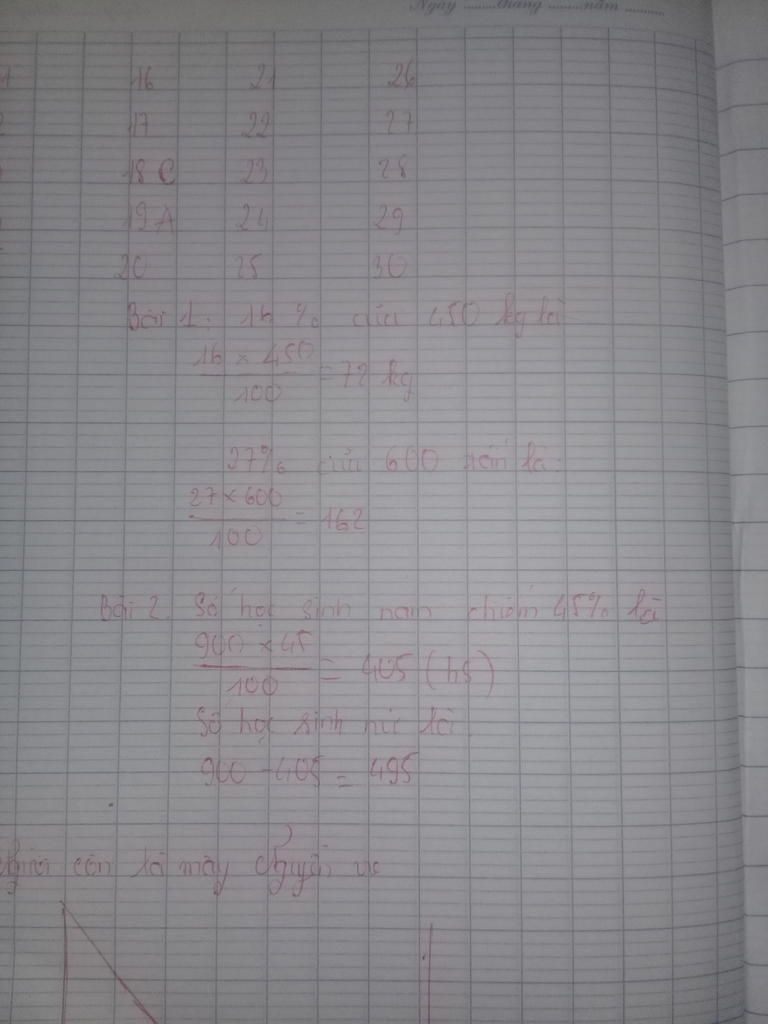 Ngày ........tháng ........năm ........
16 21 26
17 22 27
18 C 23 28
19 A 24 29
20 25 30
Bài 1: 16 % của 450 kg là
16 × 450
100
= 72 kg
27% của 600 là:
27 × 600
100
= 162
Bài 2 Số học sinh nam chiếm 45% là
900 × 45
100
= 405 (hs)
Số học sinh nữ là
900 - 405 = 495
còn là máy